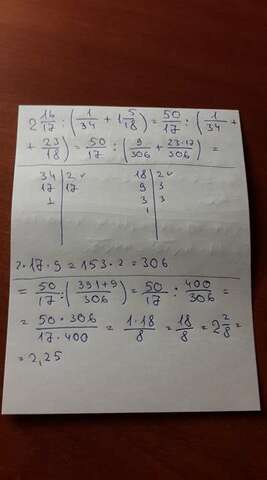 2 16/17 : (1/34 + 1 5/18) = 50/17 : (1/34 +
+ 23/18) = 50/17 : (9/306 + 23·17/306) =
34 | 2 ✓ 18 | 2 ✓
17 | 17 9 | 3
1 | 3 | 3
1 |
2·17·9 = 153·2 = 306
= 50/17 : (391+9/306) = 50/17 : 400/306 =
= 50·306/17·400 = 1·18/8 = 18/8 = 2 2/8 =
= 2,25